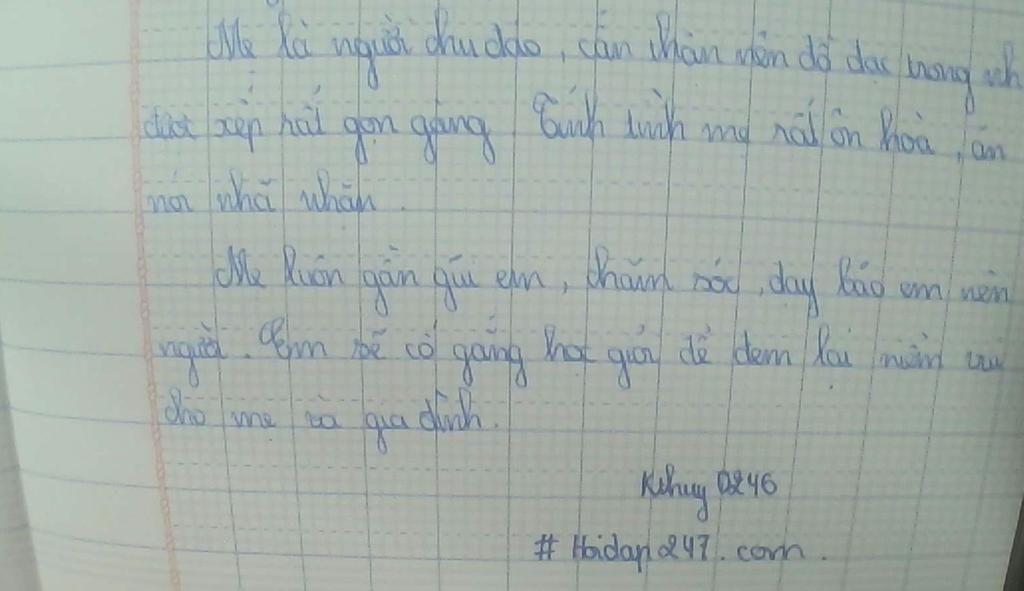 Mẹ là người chu đáo, cẩn thận nên đồ đạc trong nh
được xếp rất gọn gàng Tính tình mẹ rất ôn hoà, ăn
nói nhã nhặn.
Mẹ luôn gần gũi em, chăm sóc, dạy bảo em nên
người. Em sẽ cố gắng học giỏi để đem lại niềm vu
cho mẹ và gia đình.
Kthuy 0246
# Hoidap247.com.